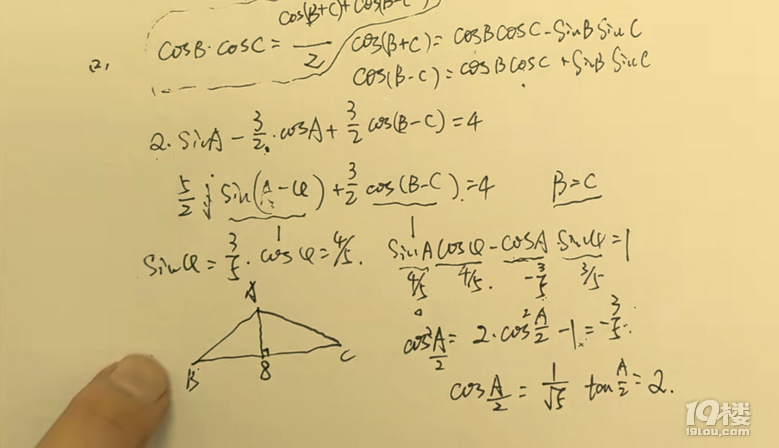 (2).
cosB·cosC = cos(B+C)+cos(B-C) / 2
cos(B+C) = cosBcosC - SinB SinC
cos(B-C) = cosBcosC + SinB SinC
2·SinA - 3/2·cosA + 3/2 cos(B-C) = 4
5/2 Sin(A-φ) + 3/2 cos(B-C) = 4 B=C
1 1
Sinφ = 3/5· cosφ = 4/5. SinA cosφ - cosA·Sinφ = 1
4/5 4/5. -3/5 3/5
A
B 8 C
2·cos² A/2 - 1 = -3/5.
cos A/2 = 1/√5 tan A/2 = 2.
19楼
19lou.com